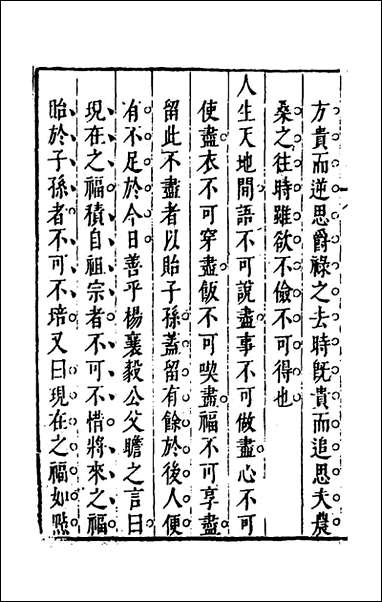 方貴而逆思爵祿之去時旣貴而追思夫農
桑之往時雖欲不儉不可得也
人生天地間語不可說盡事不可做盡心不可
使盡衣不可穿盡飯不可喫盡福不可享盡
留此不盡者以貽子孫蓋留有餘於後人便
有不足於今日善乎楊襄毅公父瞻之言曰
現在之福積自祖宗者不可不惜將來之福
貽於子孫者不可不培又曰現在之福如㸃